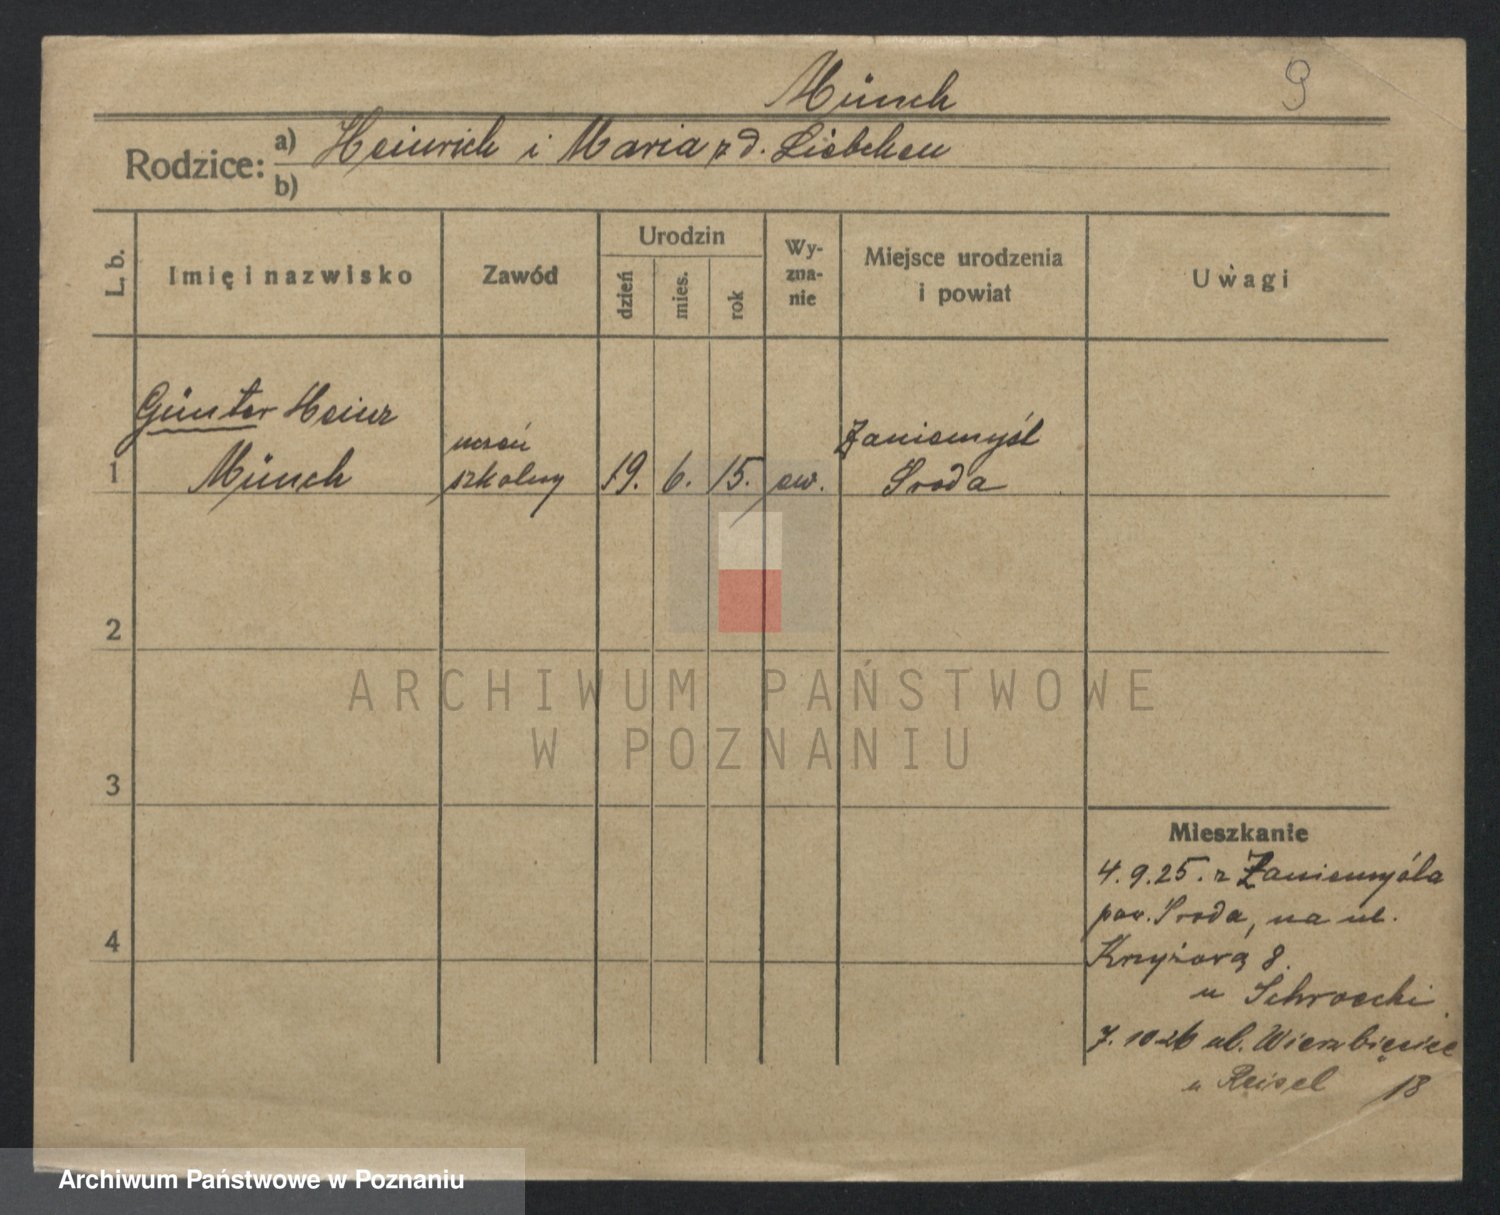 Münch
9
Rodzice: a) Heinrich i Maria z d. Liebchen
b)
L. b.
Imię i nazwisko
Zawód
Urodzin
dzień
mies.
rok
Wy-
zna-
nie
Miejsce urodzenia
i powiat
Uwagi
1
Günter Heinz
Münch
uczeń
szkolny
19. 6. 15. ew.
Zaniemyśl
Środa
2
3
4
ARCHIWUM PAŃSTWOWE
W POZNANIU
Mieszkanie
4.9.25. z Zaniemyśla
pow. Środa, na ul.
Krzyżową 8.
u Schroecki
7.10.26 ul. Wierzbięcice
u Reisel 18
Archiwum Państwowe w Poznaniu